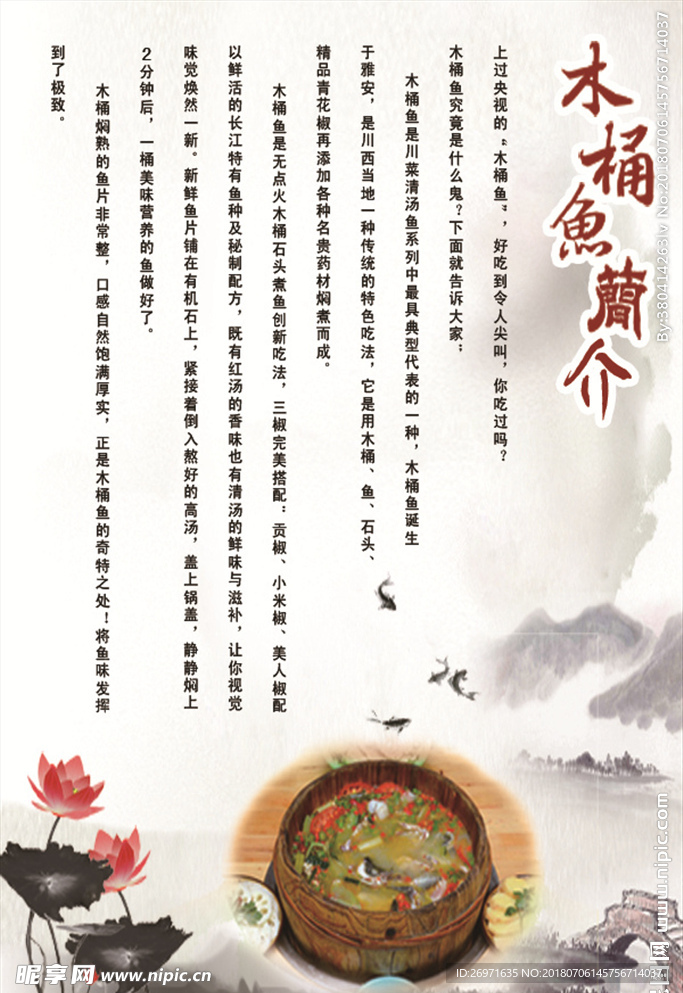 木桶魚簡介
上过央视的“木桶鱼”，好吃到令人尖叫，你吃过吗？
木桶鱼究竟是什么鬼？下面就告诉大家：
木桶鱼是川菜清汤鱼系列中最具典型代表的一种，木桶鱼诞生
于雅安，是川西当地一种传统的特色吃法，它是用木桶、鱼、石头、
精品青花椒再添加各种名贵药材焖煮而成。
木桶鱼是无点火木桶石头煮鱼创新吃法，三椒完美搭配：贡椒、小米椒、美人椒配
以鲜活的长江特有鱼种及秘制配方，既有红汤的香味也有清汤的鲜味与滋补，让你视觉
味觉焕然一新。新鲜鱼片铺在有机石上，紧接着倒入熬好的高汤，盖上锅盖，静静焖上
2分钟后，一桶美味营养的鱼做好了。
木桶焖熟的鱼片非常整，口感自然饱满厚实，正是木桶鱼的奇特之处！将鱼味发挥
到了极致。
By:380414263lv No:20180706145756714037
www.nipic.com
昵享网 www.nipic.cn
ID:26971635 NO:20180706145756714037